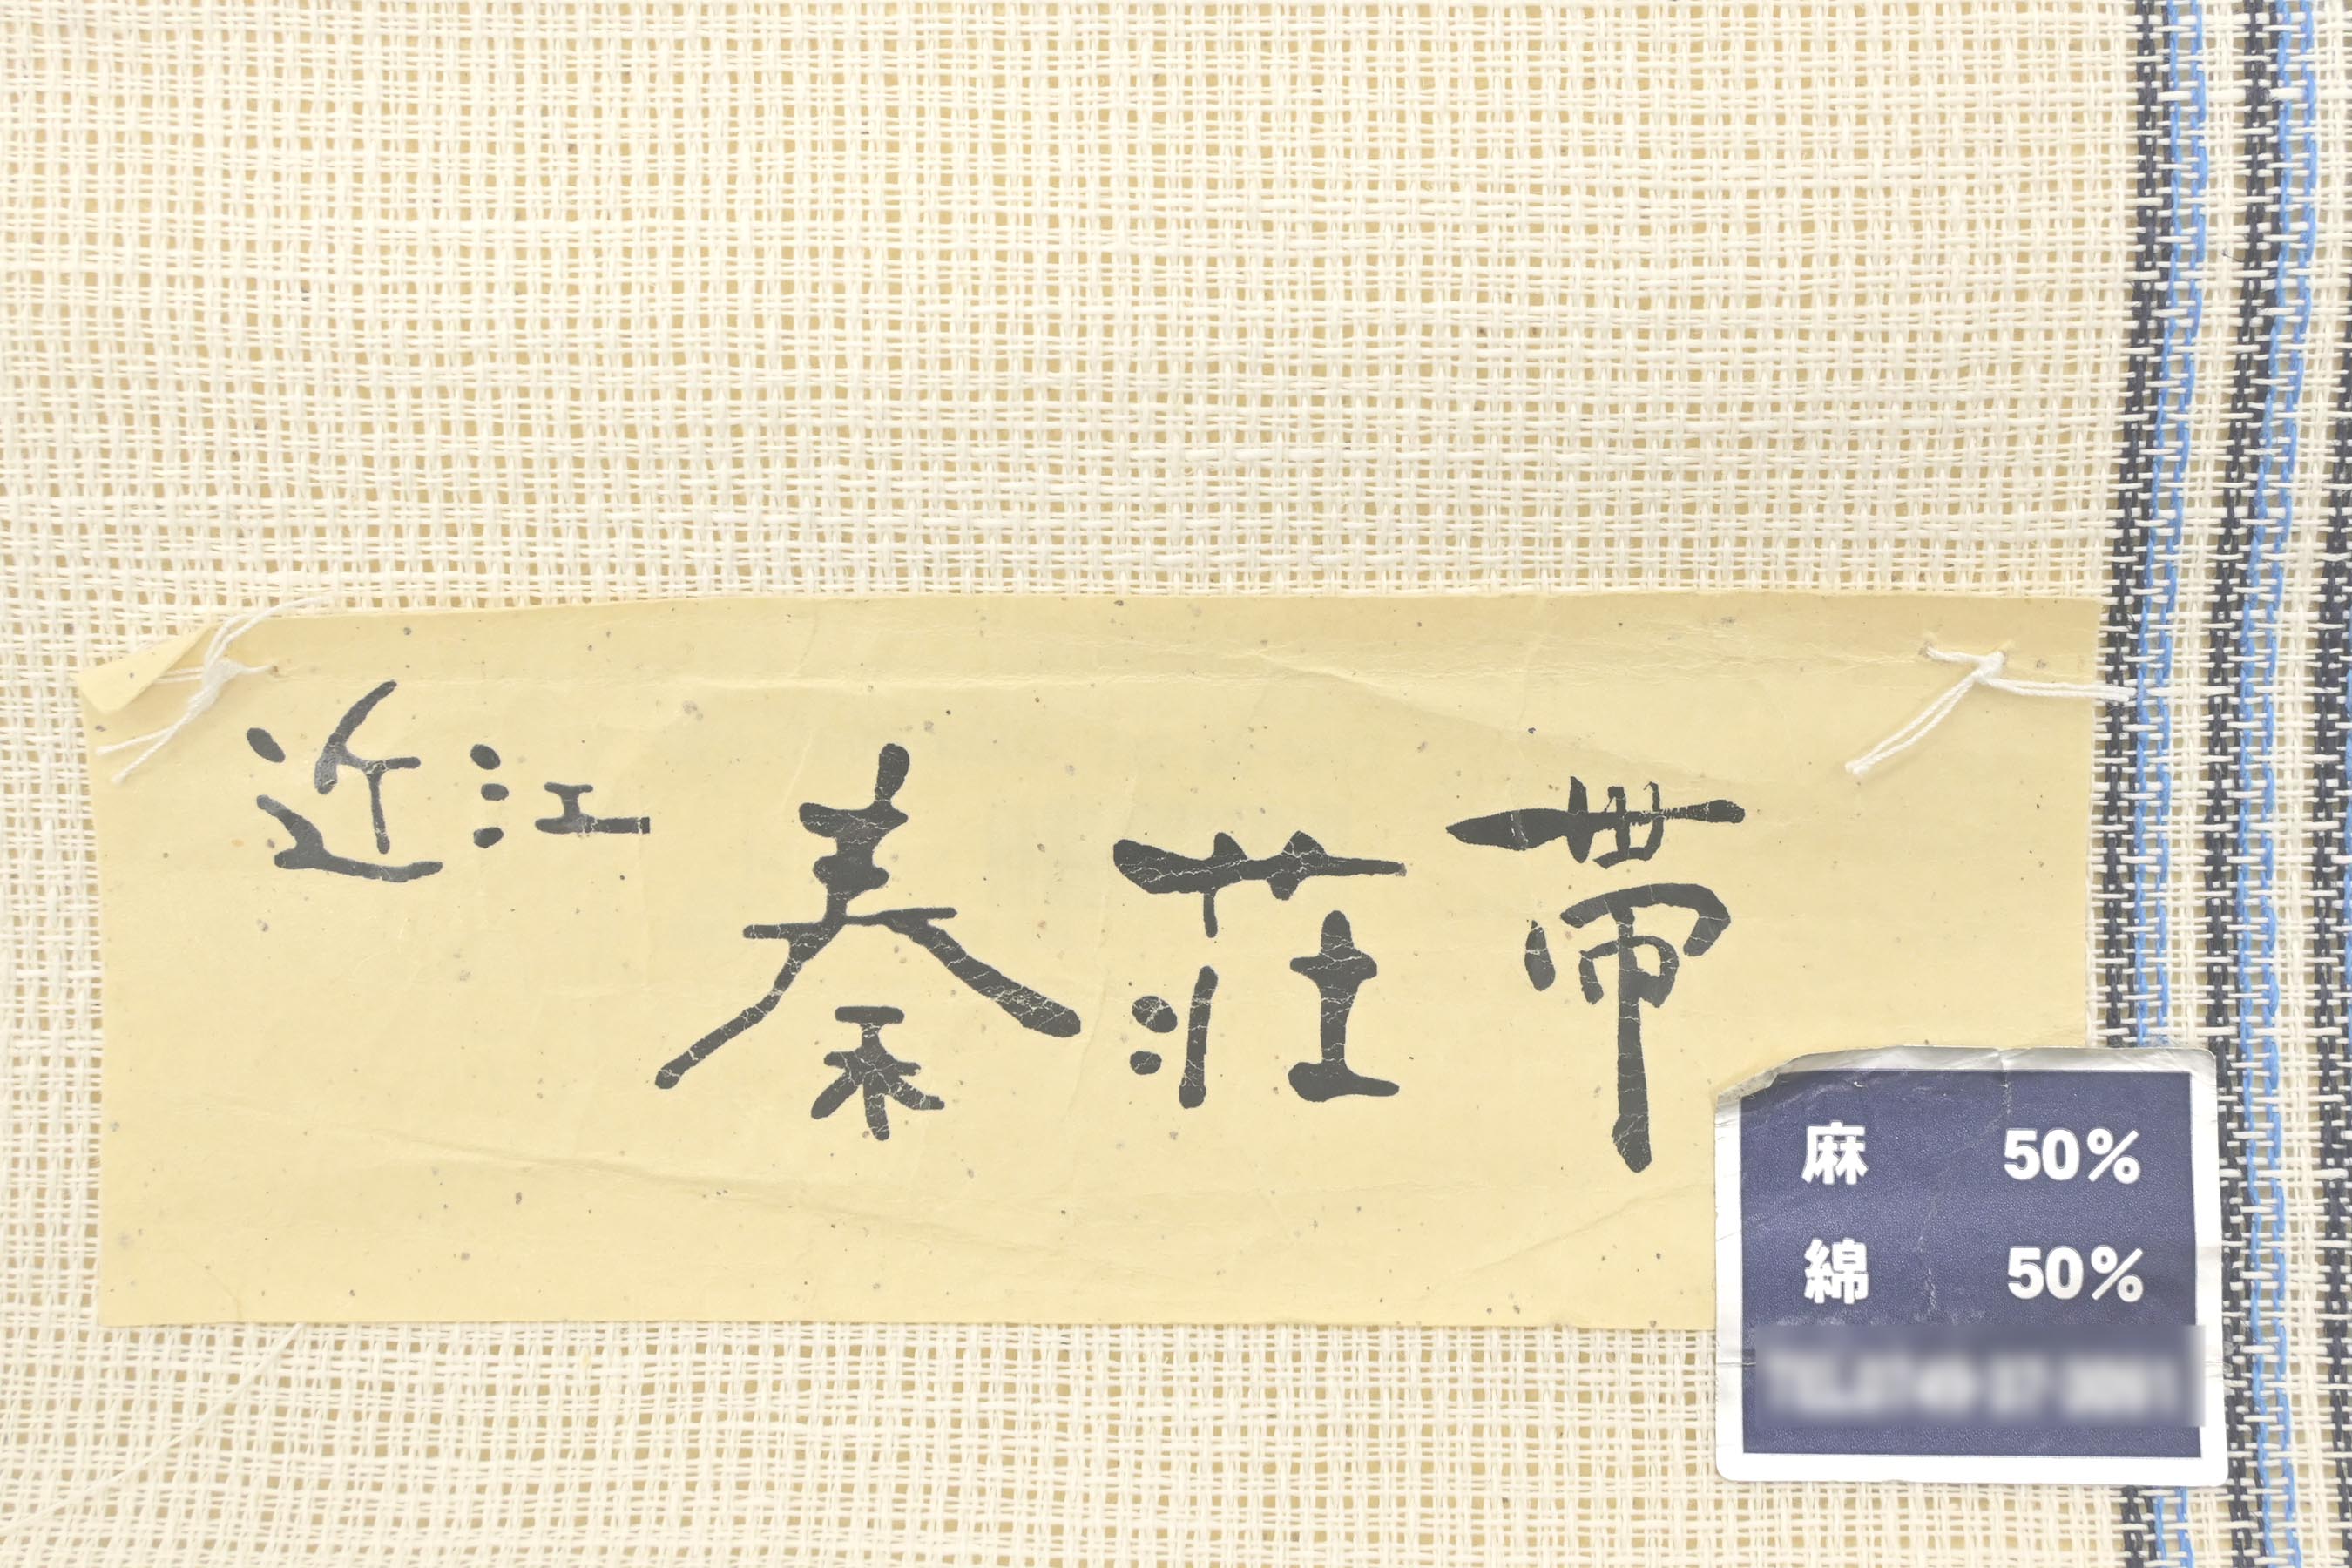 近江 秦荘帯
麻 50%
綿 50%